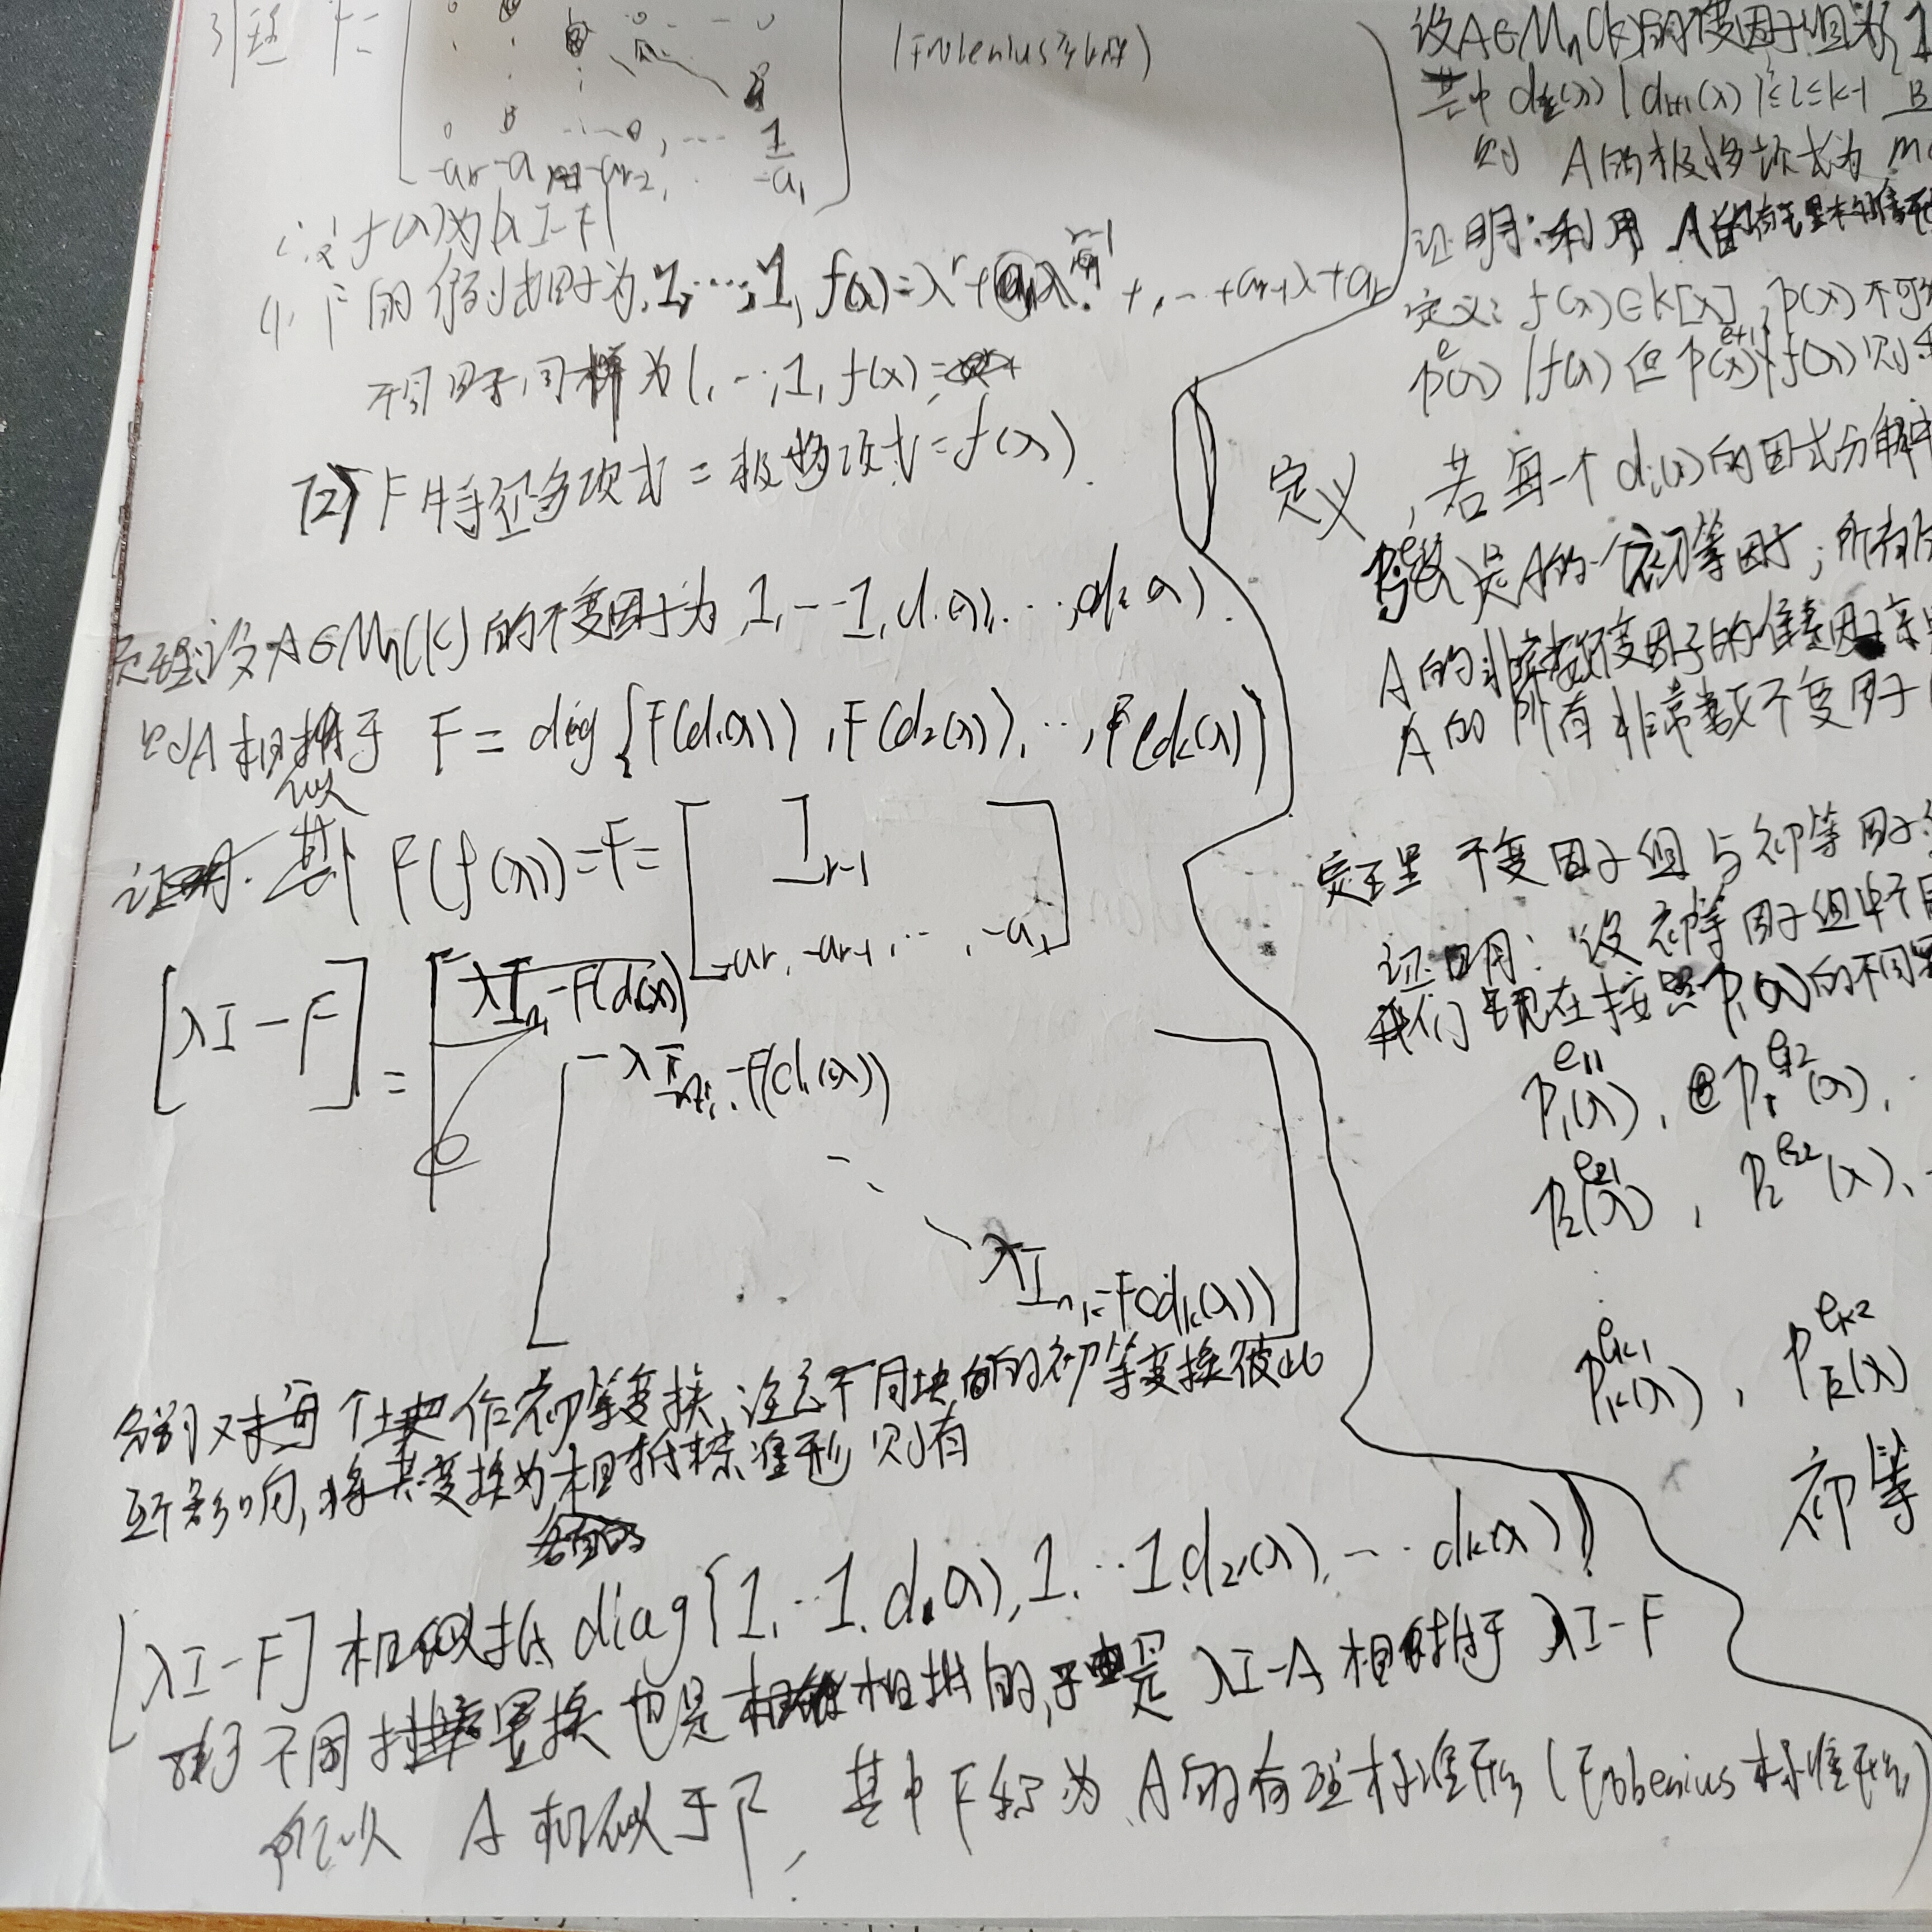 引理 F=
0 0 … 0
1
-ar -a -ar-2, … -a1
(Frobenius
设 f(λ)为|λI-F|
(1) F的行列式因子为1,…,1, f(λ)=λ^r+a1λ^{r-1}+…+ar-1λ+ar
不变因子同样为1,…,1,f(λ)
(2) F特征多项式=极小多项式=f(λ).
定理:设A∈Mn(k)的不变因子为1,…1,d1(λ),…,dk(λ).
则A相似于 F=diag{F(d1(λ)),F(d2(λ)),…,F(dk(λ))}
证明. 其中 F(f(λ))=F=[ Ir-1
-ar,-ar-1,…,-a1 ]
[λI-F]=
λIn1-F(d1(λ))
λIni-F(di(λ))
λInk-F(dk(λ))
分别对每个块作初等变换,注意不同块间的初等变换彼此
互不影响,将其变换为相抵标准形 则有
[λI-F]相抵于 diag{1,…1,d1(λ),1,…1,d2(λ),…dk(λ)}
不同 置换也是相抵的,于是 λI-A 相抵于 λI-F
所以 A相似于F, 其中F称为A的有理标准形(Frobenius标准形)
设A∈Mn(k)的不变因子组为{1
其中 di(λ)|di+1(λ) 1≤i≤k-1 且
则 A的极小多项式为 m
证明:利用 A的有理标准形
定义:f(λ)∈k[λ],p(λ)不可
p^e(λ)|f(λ) 但 p^{e+1}(λ)∤f(λ) 则
定义,若每一个di(λ)的因式分解中
是A的一个初等因子;所有
A的非常数不变因子的准素因子
A的所有非常数不变因子
定理 不变因子组与初等因子
证明:设初等因子组中不同
我们现在按照p1(λ)的不同
p1^{e11}(λ), p1^{e12}(λ),
p2^{e21}(λ), p2^{e22}(λ),
pk^{ek1}(λ), pk^{ek2}(λ)
初等